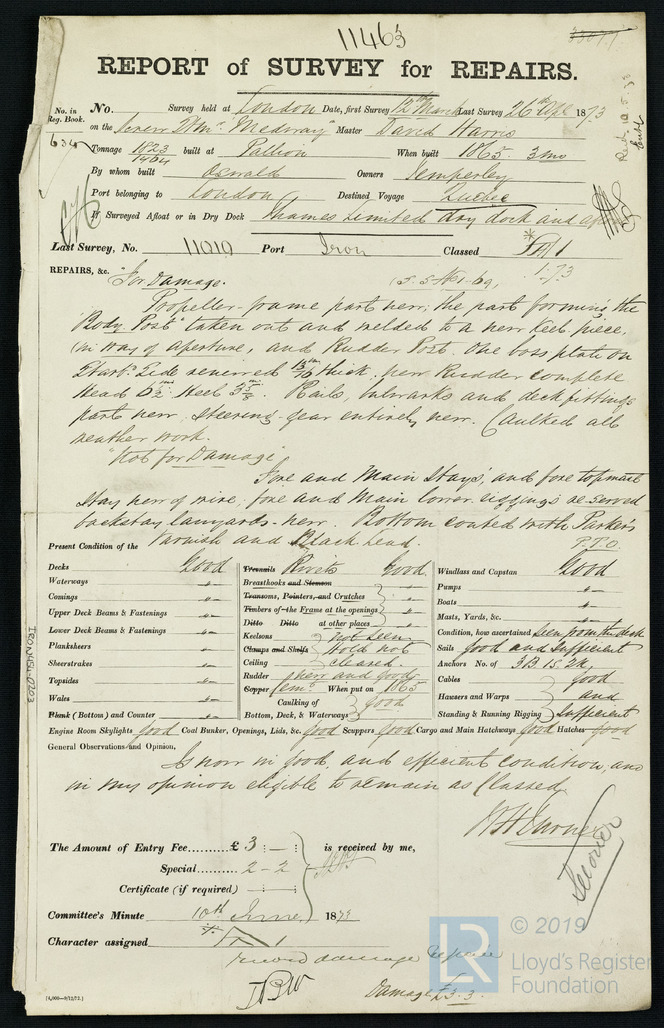 11463
REPORT of SURVEY for REPAIRS.
No. in Reg. Book.
No. Survey held at London Date, first Survey 12th March Last Survey 26th Apl 1873
634 on the Screw Str "Medway" Master David Harris
Tonnage 1823 built at Pallion When built 1865. 3mo
1464
By whom built Oswald Owners Temperley
Port belonging to London Destined Voyage Quebec
If Surveyed Afloat or in Dry Dock Thames Limited dry dock and afloat
Last Survey, No. 11019 Port Iron Classed A 1
1.73
REPAIRS, &c. "For Damage. (S. S. No 1-69,
Propeller-frame part new; the part forming the
"Body Post" taken out and welded to a new keel piece,
(in way of aperture, and Rudder Post. One boss plate on
Starbd. Side renewed 13/16 thick: new Rudder complete
Head 6 1/2 in: Heel 3 5/8 in. Rails, bulwarks and deck fittings
part new, steering gear entirely new. Caulked all
weather work.
"Not for Damage"
Fore and Main Stays, and fore topmast
Stay new of wire, fore and Main lower riggings re-served
backstay lanyards new. Bottom coated with Parker's
Varnish and Black Lead. P.T.O.
Present Condition of the
Decks Good Treenails Rivets Good. Windlass and Capstan Good
Waterways " Breasthooks and Stemson Pumps "
Comings " Transoms, Pointers, and Crutches " Boats "
Upper Deck Beams & Fastenings " Timbers of the Frame at the openings " Masts, Yards, &c. "
Lower Deck Beams & Fastenings " Ditto Ditto at other places " Condition, how ascertained Seen from the deck
Planksheers " Keelsons not seen Sails good and Sufficient
Sheerstrakes " Clamps and Shelfs Hold not Anchors No. of 3B. 1S. 2K,
Topsides " Ceiling cleared. Cables good
Wales " Rudder new and good Hawsers and Warps and
Plank (Bottom) and Counter " Copper Cemt. When put on 1865 Standing & Running Rigging Sufficient
Caulking of Bottom, Deck, & Waterways good
Engine Room Skylights good Coal Bunker, Openings, Lids, &c. good Scuppers good Cargo and Main Hatchways good Hatches good
General Observations and Opinion,
Is now in good, and efficient condition, and
in my opinion eligible to remain as Classed.
The Amount of Entry Fee £ 3 : — : is received by me,
Special 2 - 2
Certificate (if required) :
Committee's Minute 10th June, 1873
Character assigned A 1
record damage repairs
Damage £3.3.
(4,000—9/12/72.)
IRON454-0203
LR
© 2019
Lloyd's Register
Foundation